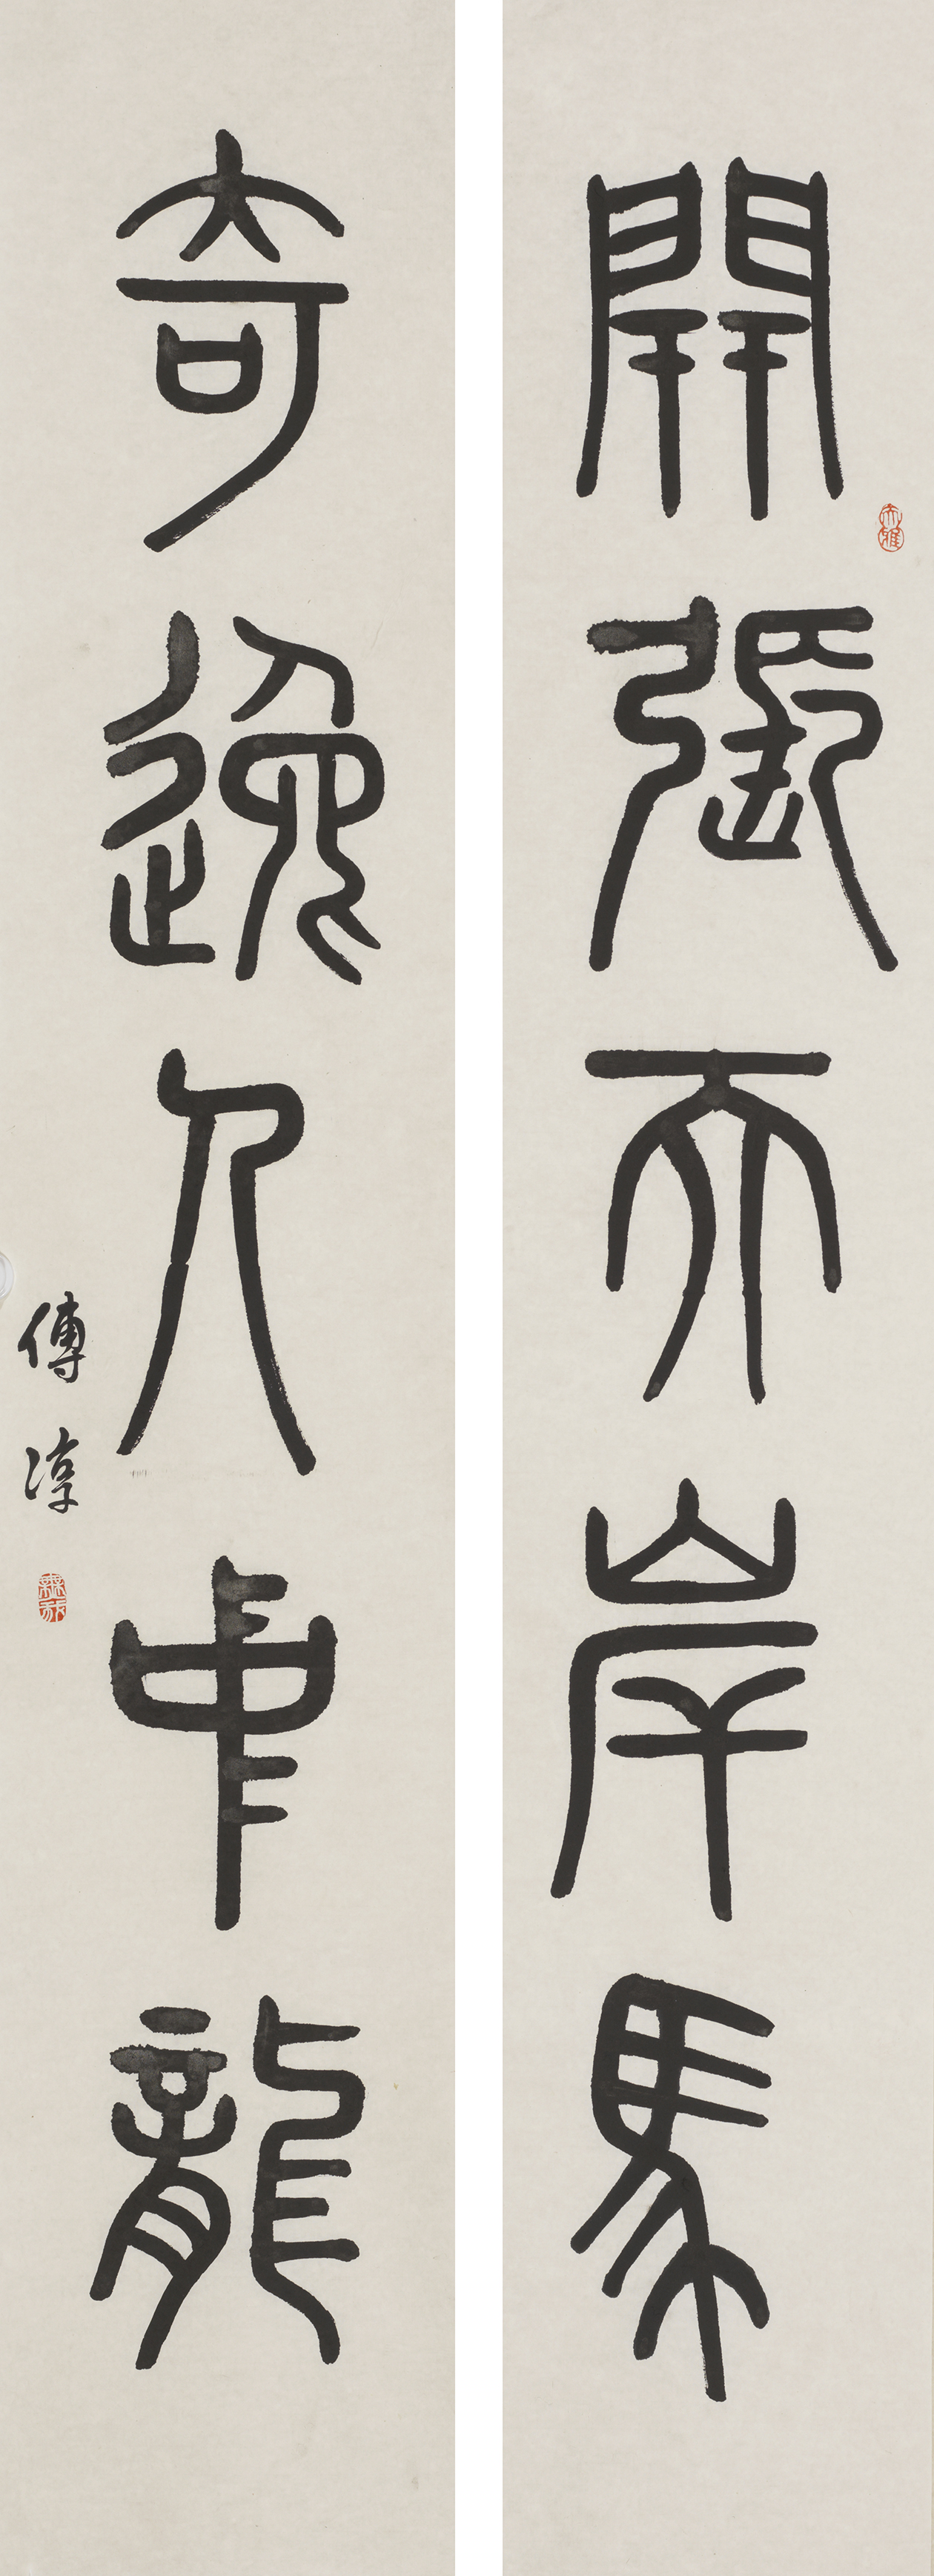 開張天岸馬
奇逸人中龍
傅淳